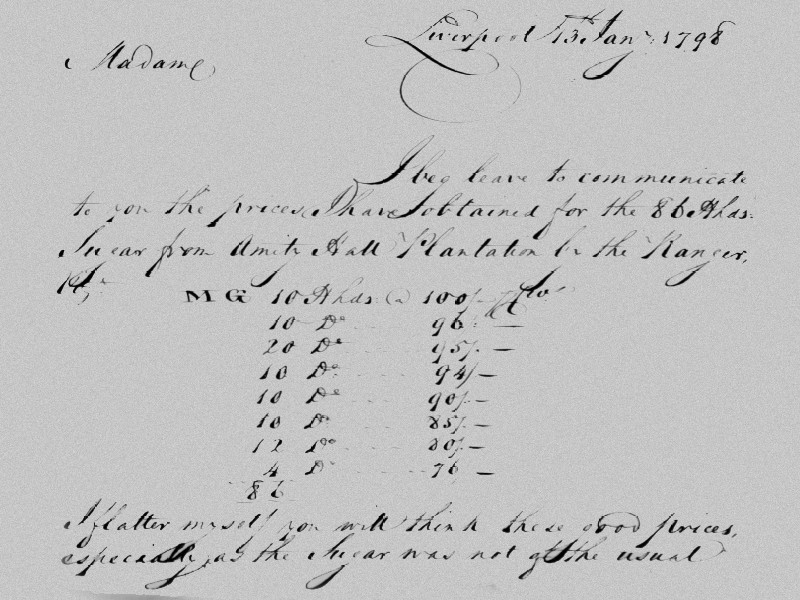 Liverpool 13 Jany. 1798
Madame
I beg leave to communicate
to you the prices I have obtained for the 86 Hhds.
Sugar from Amity Hall Plantation by the Ranger,
MG 10 Hhds. @ 100/-
10 Do 96/. —
20 Do 95/. —
10 Do 94/ —
10 Do 90/. —
10 Do 85/. —
12 Do 80/. —
4 Do 76 —
86
I flatter myself you will think these good prices,
especially as the Sugar was not of the usual